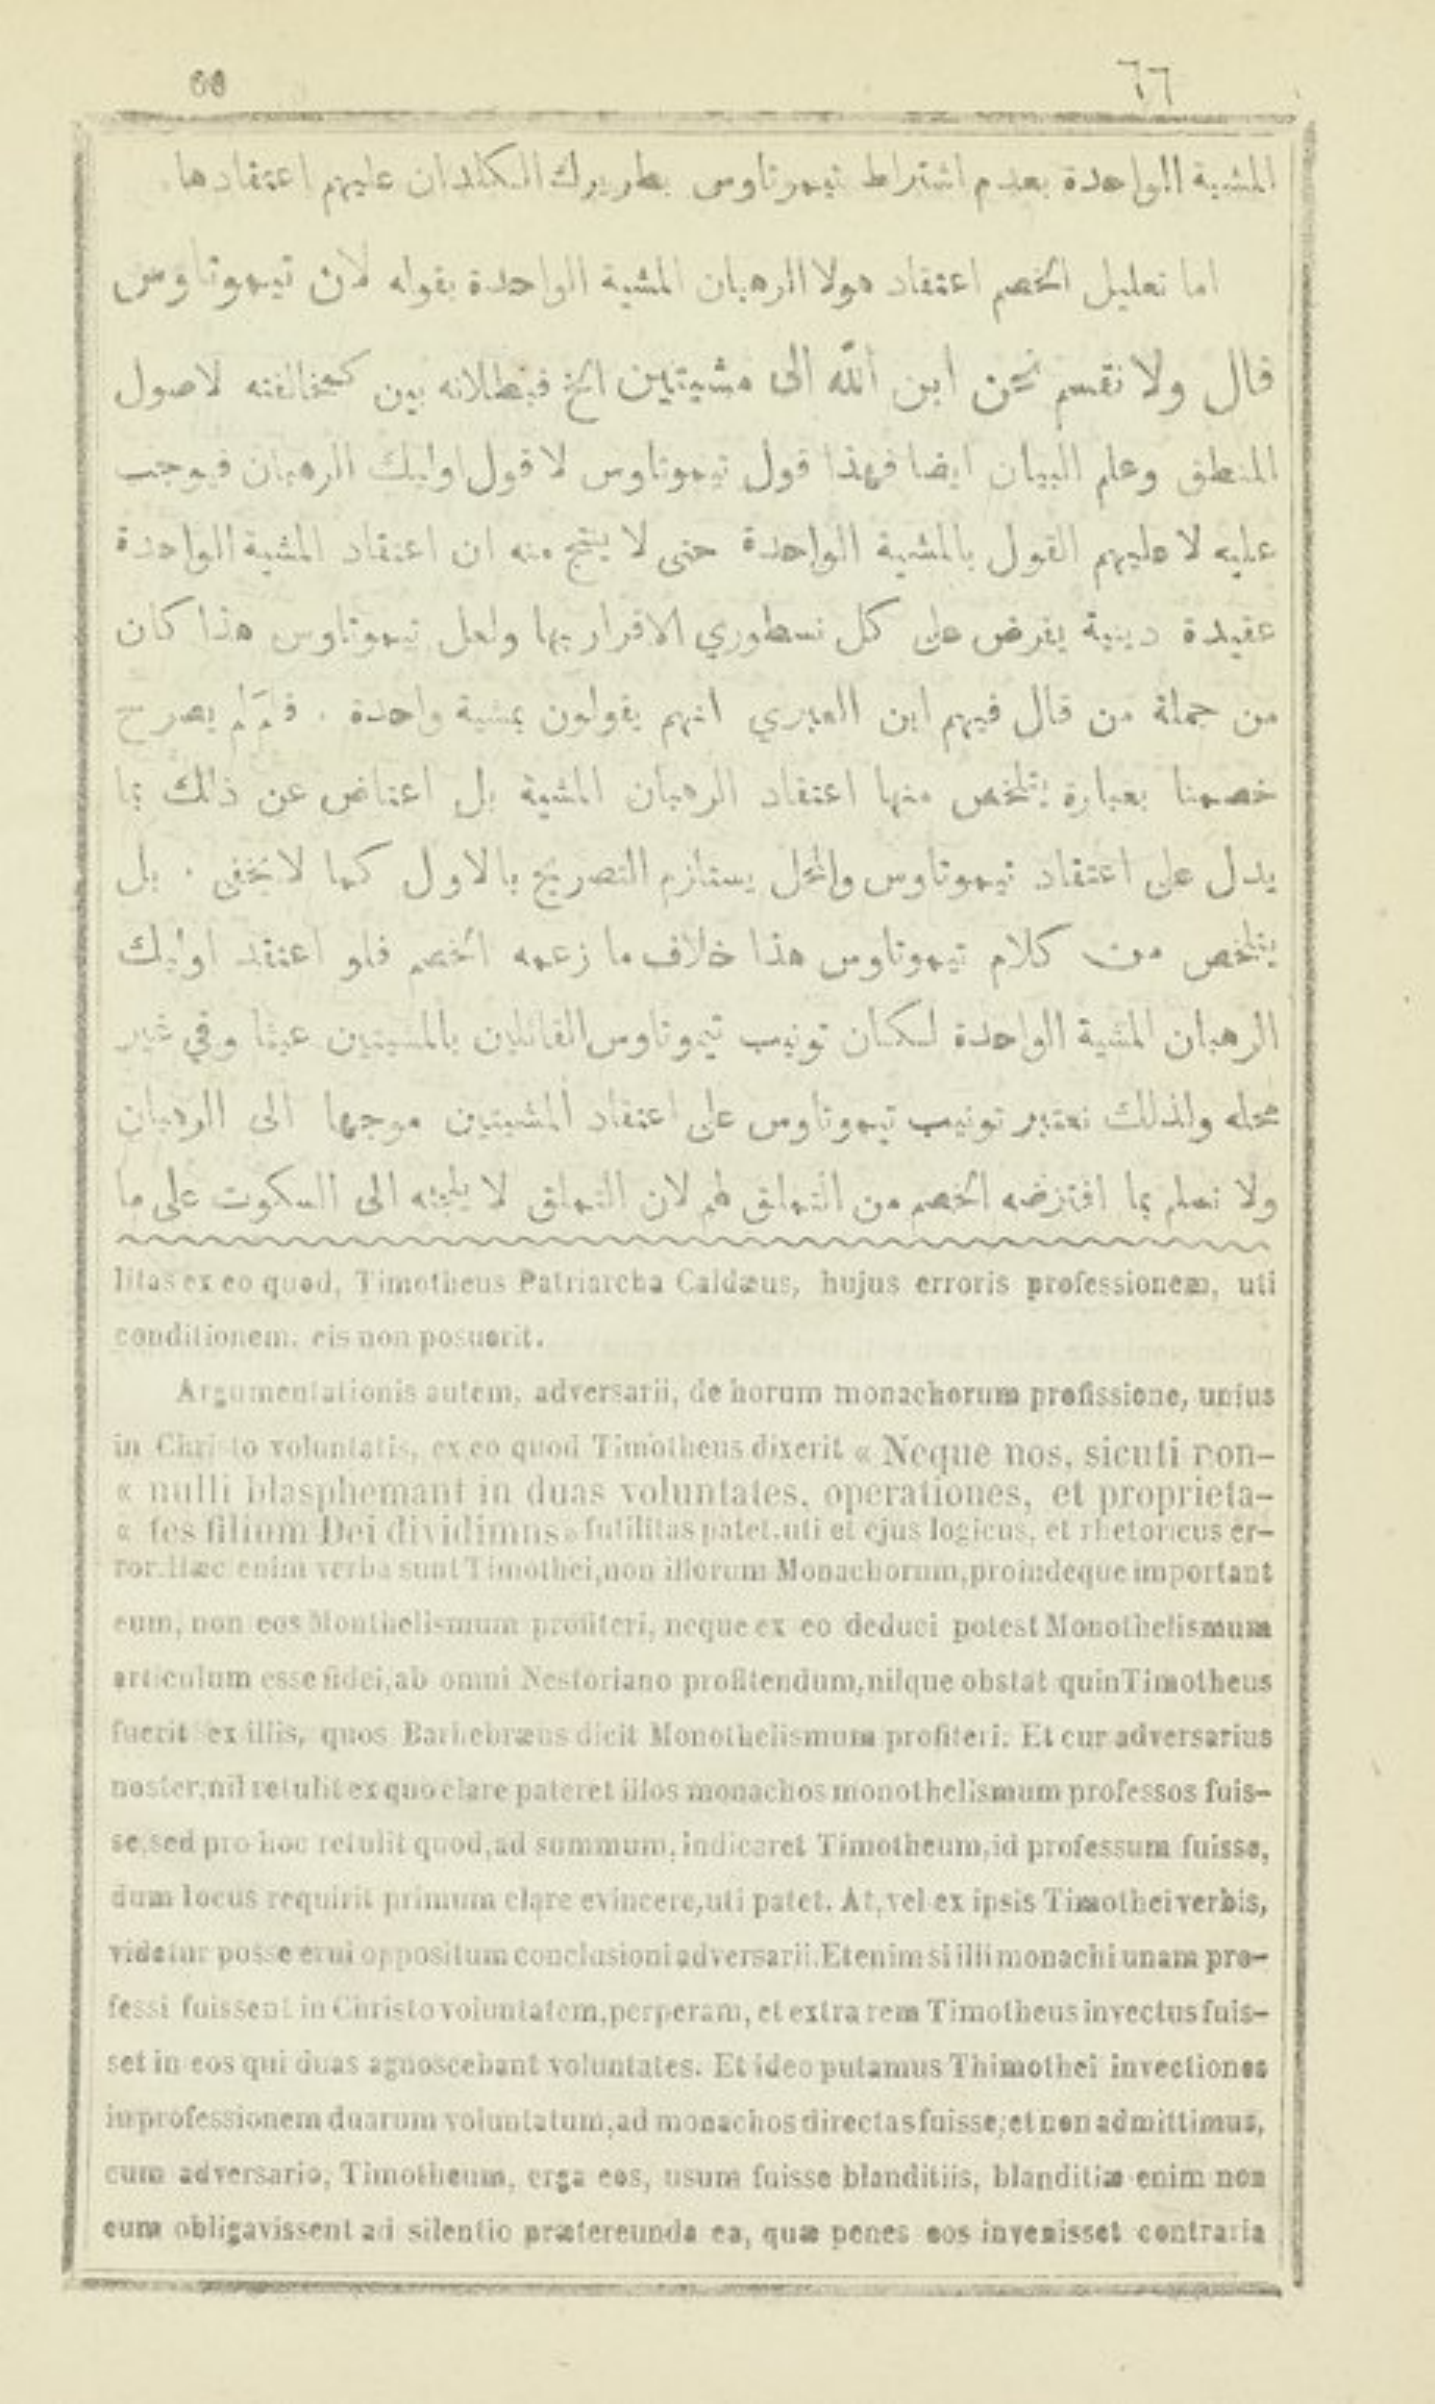 66
٦٦
المشية الواحدة بعدم اشتراط تيموتاوس بطريرك الكلدان عليهم اعتقادها
اما تعليل الخصم اعتقاد هولا الرهبان المشية الواحدة بقوله لان تيموتاوس
قال ولا نقسم نحن ابن الله الى مشيتين الخ فبطلانه بين كمخالفته لاصول
المنطق وعلم البيان ايضا فهذا قول تيموتاوس لا قول اوليك الرهبان فيوجب
عليه لا عليهم القول بالمشية الواحدة حتى لا ينتج منه ان اعتقاد المشية الواحدة
عقيدة دينية يفرض على كل نسطوري الاقرار بها ولعل تيموتاوس هذا كان
من جملة من قال فيهم ابن العبري انهم يقولون بمشية واحدة . فلمَ لم يصرح
خصمنا بعبارة يتلخص منها اعتقاد الرهبان المشية بل اعتاض عن ذلك بما
يدل على اعتقاد تيموتاوس والمحل يستلزم التصريح بالاول كما لا يخفى . بل
يتلخص من كلام تيموتاوس هذا خلاف ما زعمه الخصم فلو اعتقد اوليك
الرهبان المشية الواحدة لكان تونيب تيموتاوس القائلين بالمشيتين عبثا وفي غير
محله ولذلك نعتبر تونيب تيموتاوس على اعتقاد المشيتين موجها الى الرهبان
ولا نسلم بما افترضه الخصم من التملق لهم لان التملق لا يلجئه الى السكوت على ما
litas ex eo quod, Timotheus Patriarcha Caldæus, hujus erroris professionem, uti
conditionem. eis non posuerit.
Argumentationis autem, adversarii, de horum monachorum profissione, unius
in Christo voluntatis, ex eo quod Timotheus dixerit « Neque nos, sicuti non-
« nulli blasphemant in duas voluntates, operationes, et proprieta-
« tes filium Dei dividimus » futilitas patet. uti et ejus logicus, et rhetoricus er-
ror. Hæc enim verba sunt Timothei, non illorum Monachorum, proindeque important
eum, non eos Monthelismum profiteri, neque ex eo deduci potest Monothelismum
articulum esse fidei, ab omni Nestoriano profitendum, nilque obstat quin Timotheus
fuerit ex illis, quos Barhebræus dicit Monothelismum profiteri. Et cur adversarius
noster, nil retulit ex quo clare pateret illos monachos monothelismum professos fuis-
se, sed pro hoc retulit quod, ad summum, indicaret Timotheum, id professum fuisse,
dum locus requirit primum clare evincere, uti patet. At, vel ex ipsis Timothei verbis,
videtur posse erui oppositum conclusioni adversarii. Etenim si illi monachi unam pro-
fessi fuissent in Christo voluntatem, perperam, et extra rem Timotheus invectus fuis-
set in eos qui duas agnoscebant voluntates. Et ideo putamus Thimothei invectiones
in professionem duarum voluntatum, ad monachos directas fuisse, et non admittimus,
cum adversario, Timotheum, erga eos, usum fuisse blanditiis, blanditiæ enim non
eum obligavissent ad silentio prætereunda ea, quæ penes eos invenisset contraria